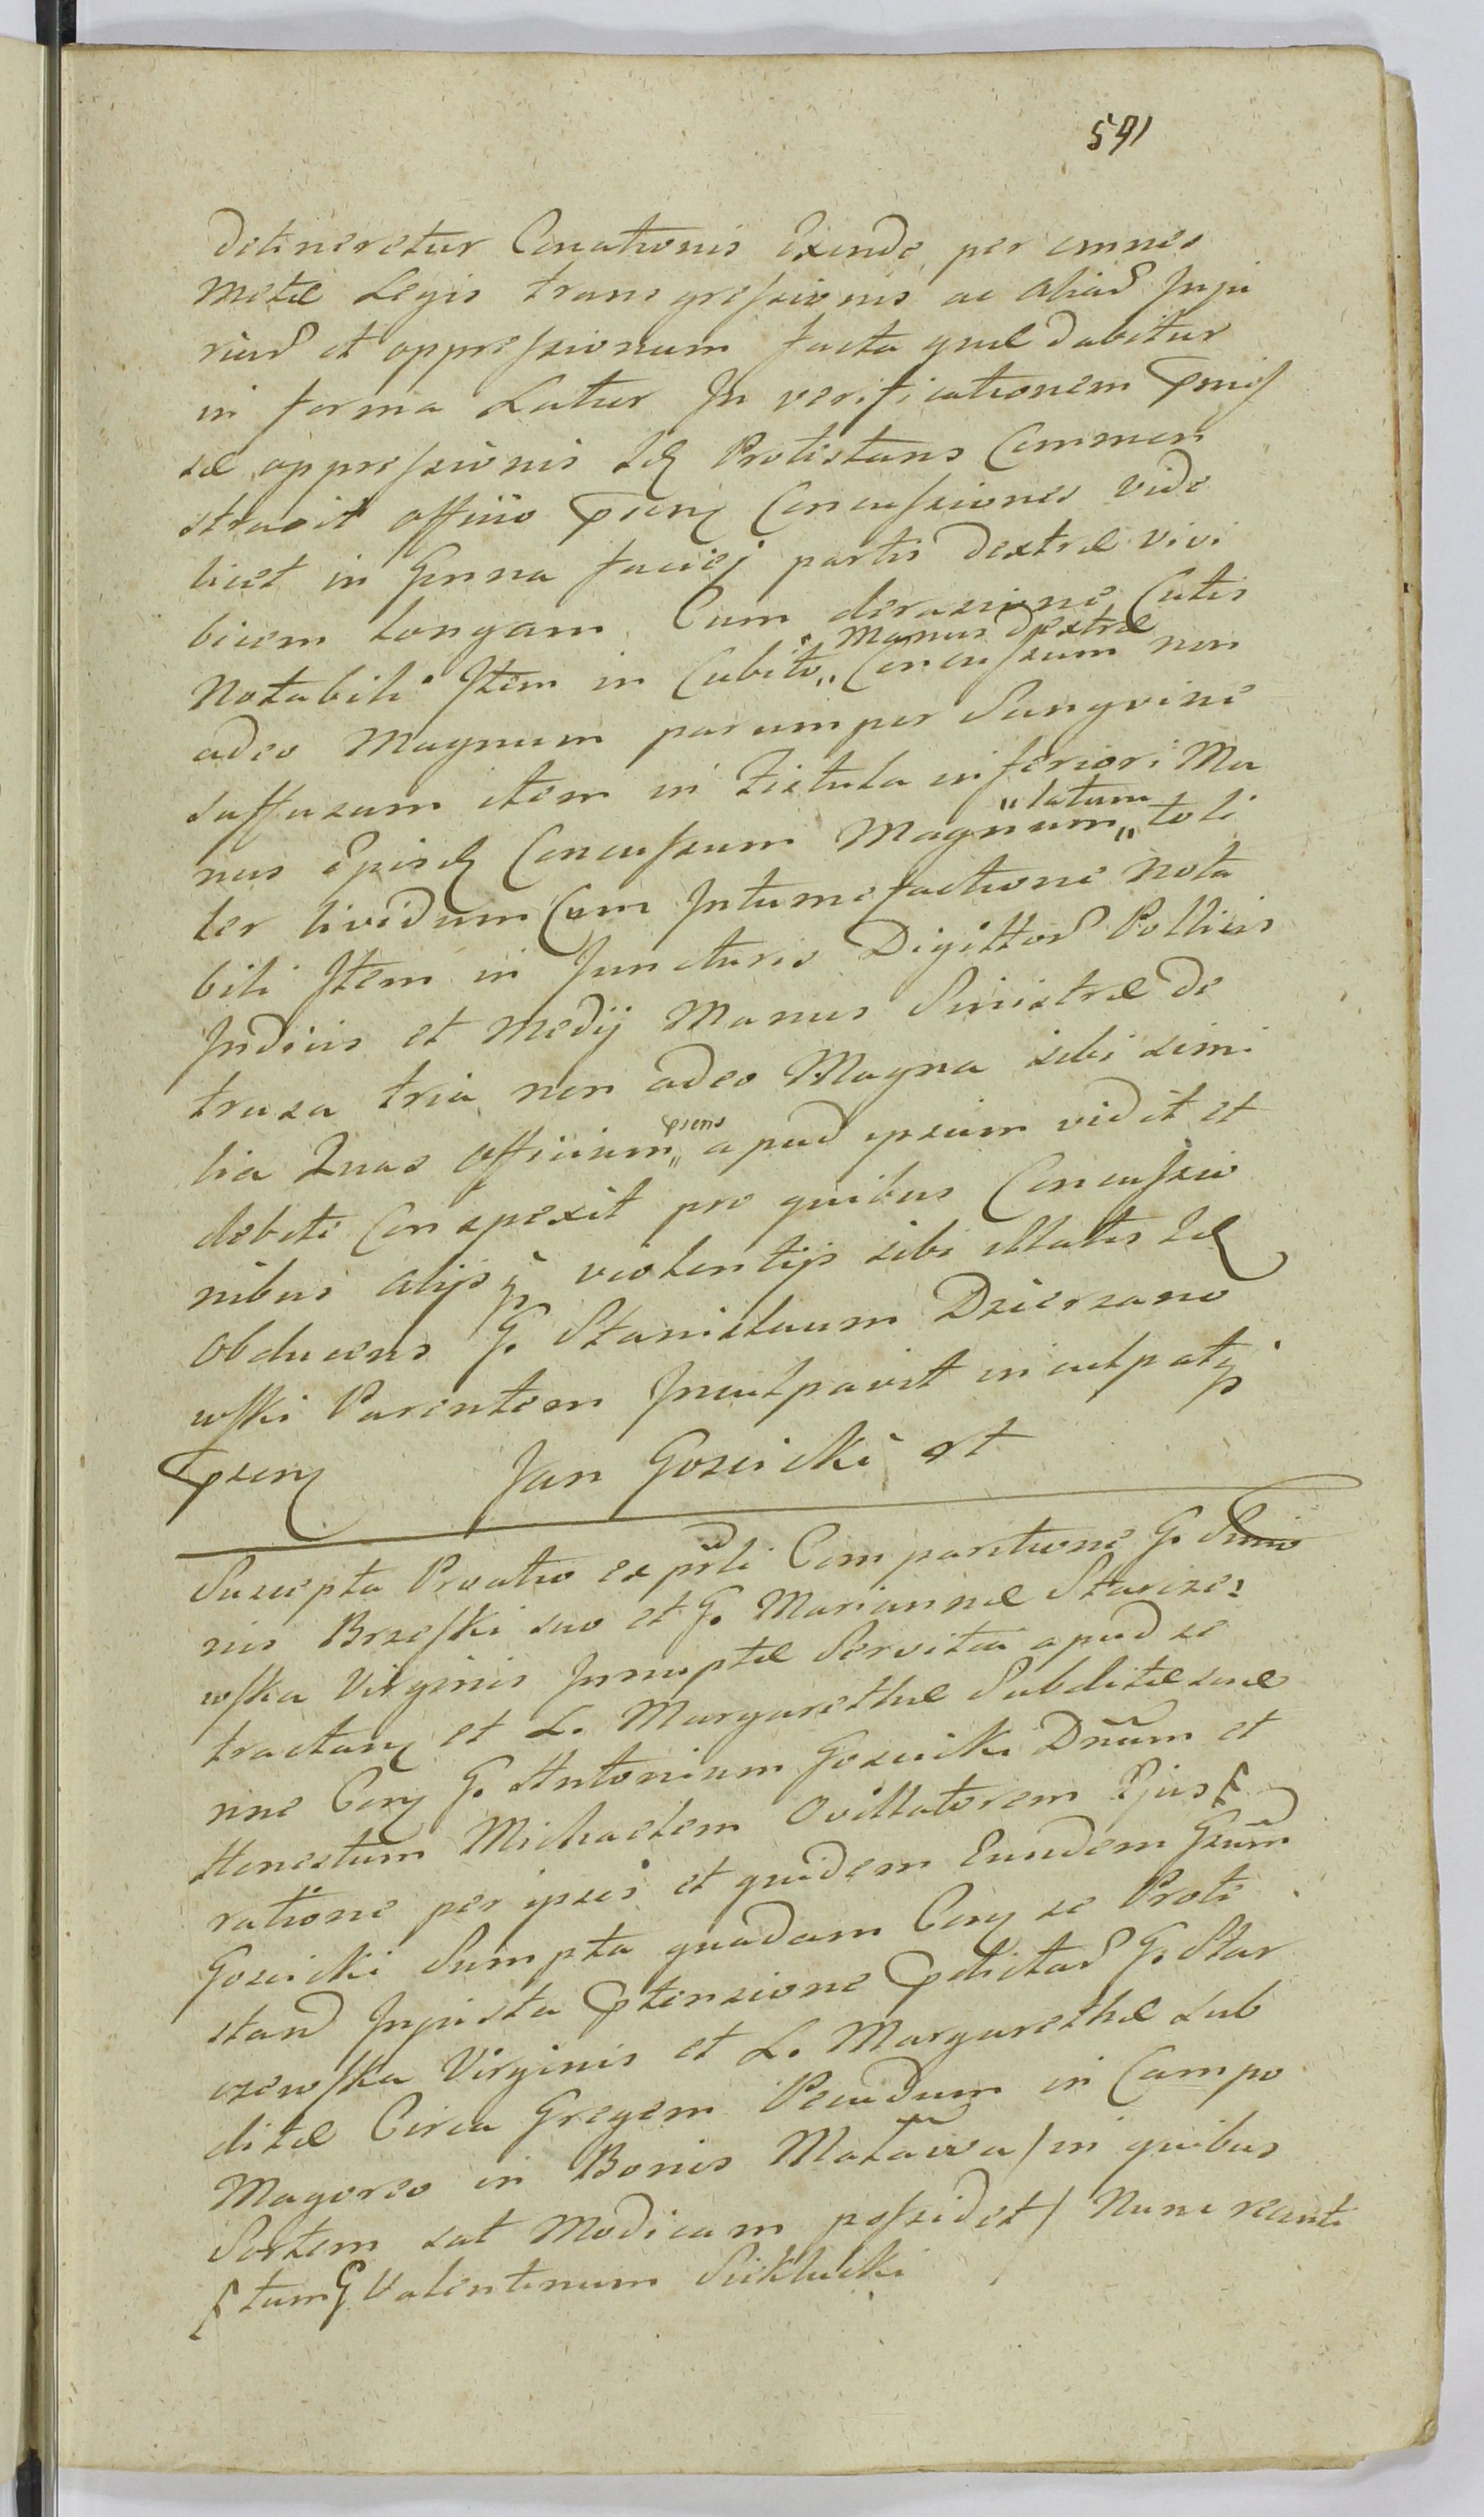 591
detineretur Conationis Exinde per omnes
metæ Legis transgressionis ac aliar Inju
riar et oppressionum facta quæ dabitur
in forma Latius In verificationem præmis
sæ oppressionis Idq Protestans Common
stravit officio præsenq Concussiones vide
licet in Genna faciej partis dextræ vivi
bicem longam Cum derasione Cutis
manus dextræ
Notabili Item in Cubito,, Concussum non
adeo Magnum parumper Sangvine
suffusum item in Fistula inferiori Ma
,,latum
nus Episdq Concussum Magnum,, toli
ter lividum Cum Intumefactione nota
bili Item in Juncturis Digittor Pollicis
Indicis et medij Manus Sinistræ de
trusa tria non adeo Magna sibi simi
præsens
lia Quas officium,, apud ipsum vidit et
debite Conspexit pro quibus Concussio
nibus alijsq violentijs sibi illatis Idq
obducens G. Stanislaum Dzierzano
wski Parentem Inculpavit inculpatq
præsenq Jan Goscicki mp
Suscepta Prvatio ex parli Comparitione G. Simo
nis Brzeski suo et G. Mariannæ Starcze
wska Virginis Innuptæ Servitia apud se
tractanq et L. Margarethæ Subditæ suæ
nne Conq G. Antonium Goscicki Dnum et
Honestum Michaelem Ovillatorem Ejus
ratione per ipsos et quidem Eundem Gsum
Goscicki Sumpta quadam Conq se Prote
stand Injusta prætensione prædictar G. Star
czewska Virginis et L. Margarethæ sub
ditæ Circa Gregem Pecudum in Campo
Magores in Bonis Malawa / in quibus
Sortem sat modicam possidet / Nunc recente
tum G Valentinum Sieklucki